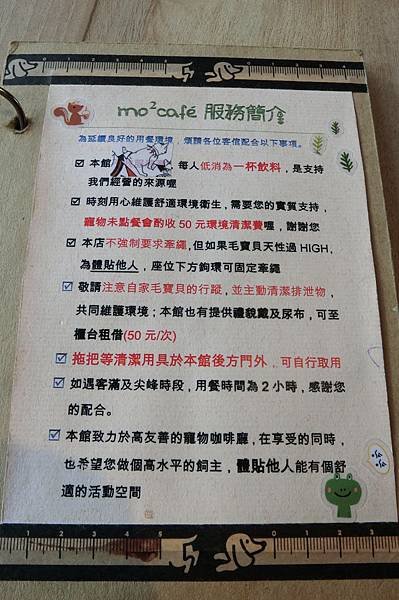 mo²café 服務簡介
為延續良好的用餐環境，煩請各位客倌配合以下事項。
本館 每人低消為一杯飲料，是支持
我們經營的來源喔
時刻用心維護舒適環境衛生，需要您的實質支持，
寵物未點餐會酌收 50 元環境清潔費喔，謝謝您
本店不強制要求牽繩,但如果毛寶貝天性過 HIGH，
為體貼他人，座位下方鉤環可固定牽繩
敬請注意自家毛寶貝的行蹤，並主動清潔排泄物，
共同維護環境；本館也有提供禮貌戴及尿布，可至
櫃台租借(50 元/次)
拖把等清潔用具於本館後方門外，可自行取用
如遇客滿及尖峰時段，用餐時間為 2 小時，感謝您
的配合。
本館致力於高友善的寵物咖啡廳，在享受的同時，
也希望您做個高水平的飼主，體貼他人能有個舒
適的活動空間